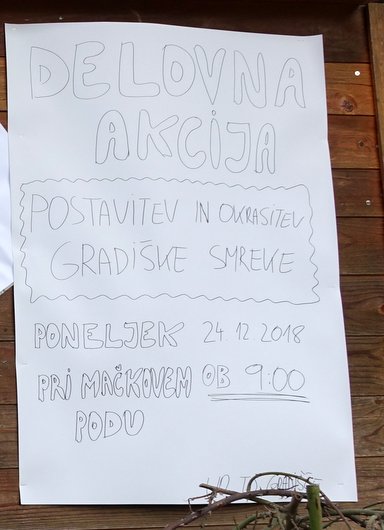 DELOVNA
AKCIJA
POSTAVITEV IN OKRASITEV
GRADIŠKE SMREKE
PONELJEK 24.12.2018
PRI MAČKOVEM OB 9:00
PODU